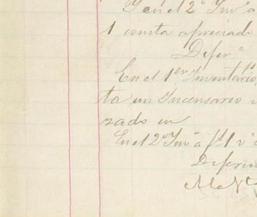 Y en el 2º Invº a
1 consta apreciado
Diferª
En el 1er Inventario
ta un Incensario
zado en
En el 2º Invº a fs 1 vª
Diferen